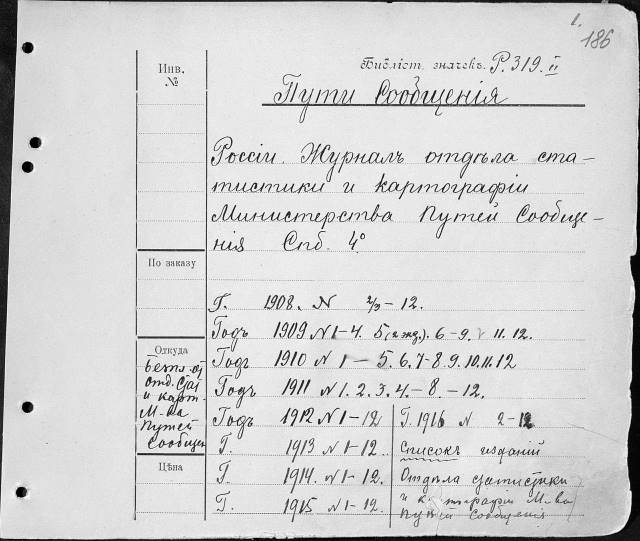 1.
186
Библіст. значекъ. Р. 319. II
Инв.
№
Пути Сообщенія
Россіи. Журналъ отдѣла ста-
тистики и картографіи
Министерства Путей Сообще-
нія Спб. 4°.
По заказу
Г. 1908. N 2/3 - 12.
Годъ 1909 N 1-4. 5 6-9. 11. 12.
Откуда
Годъ 1910 N 1 - 5. 6. 7-8. 9. 10. 11. 12
Безпл. от
отд. Стат
и карт.
М-ва
Путей
Сообщен
Годъ 1911 N 1. 2. 3. 4. - 8. - 12.
Годъ 1912 N 1-12
Г. 1916 N 2-12
Г. 1913 N 1-12.
Списокъ изданій
Цѣна
Г. 1914. N 1-12.
Отдѣла статистики
и картографіи М-ва
Г. 1915 N 1-12.
Путей Сообщенія